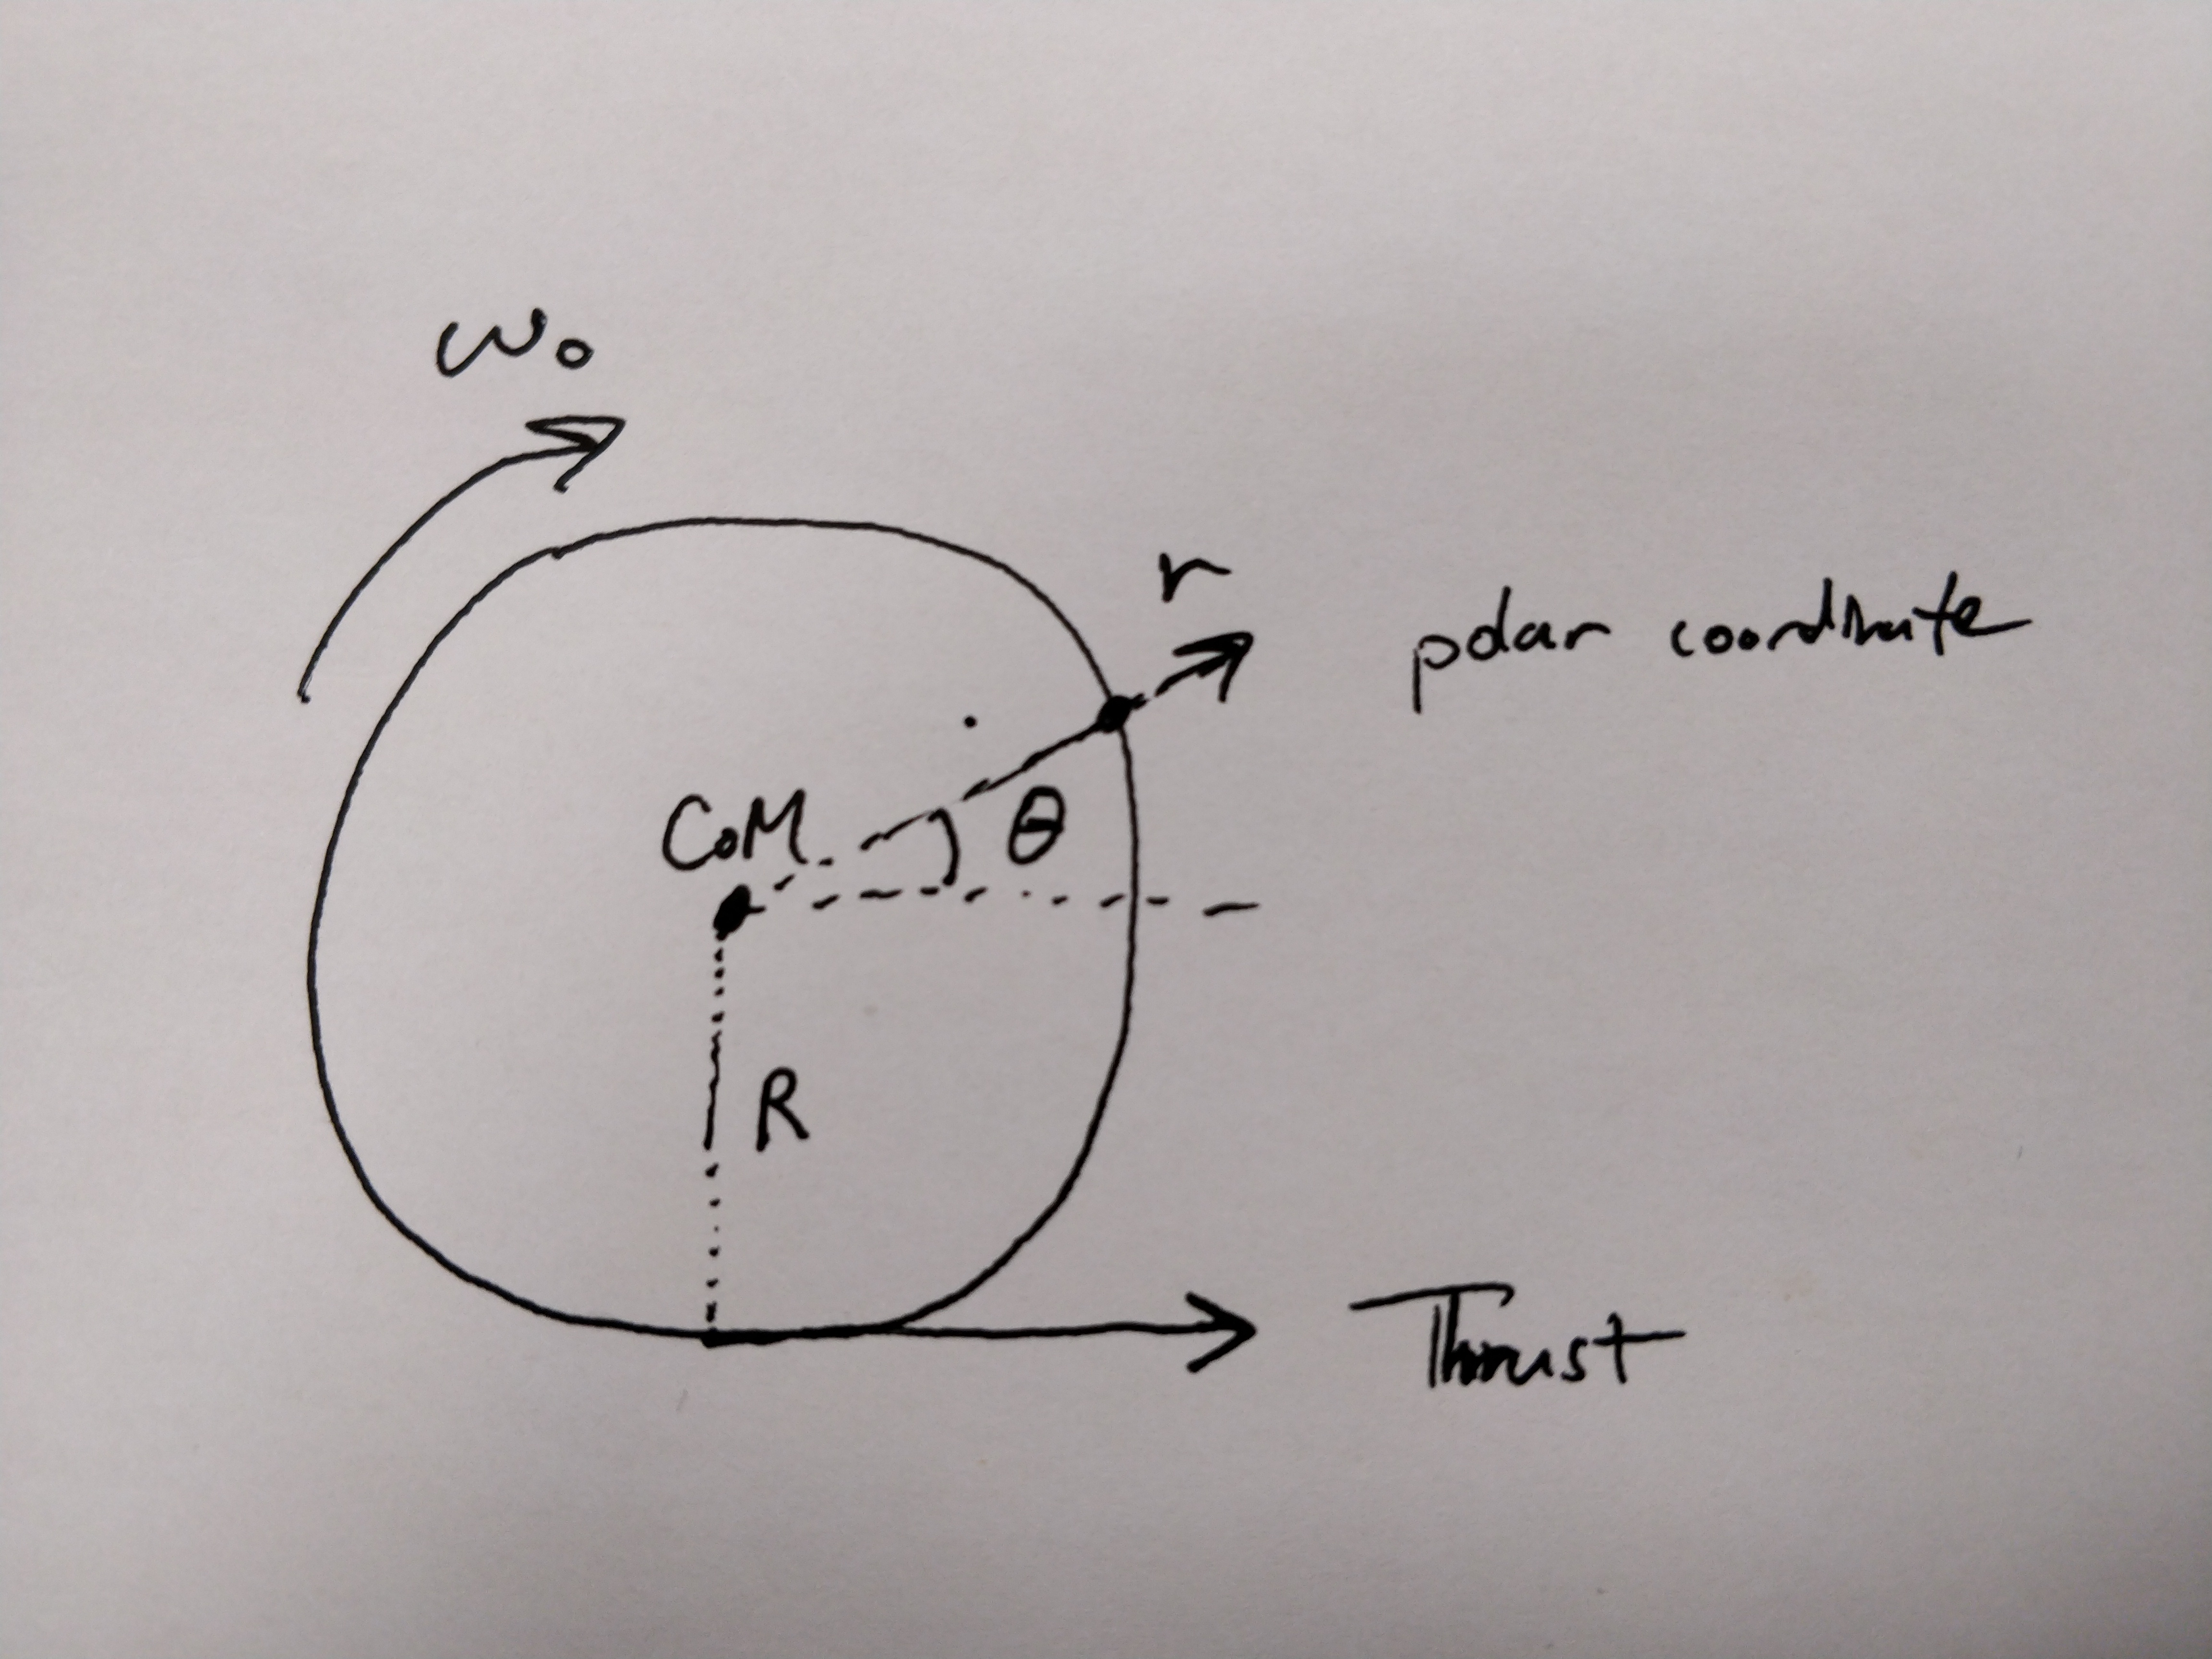 ω₀
r
polar coordinate
CoM
θ
R
Thrust